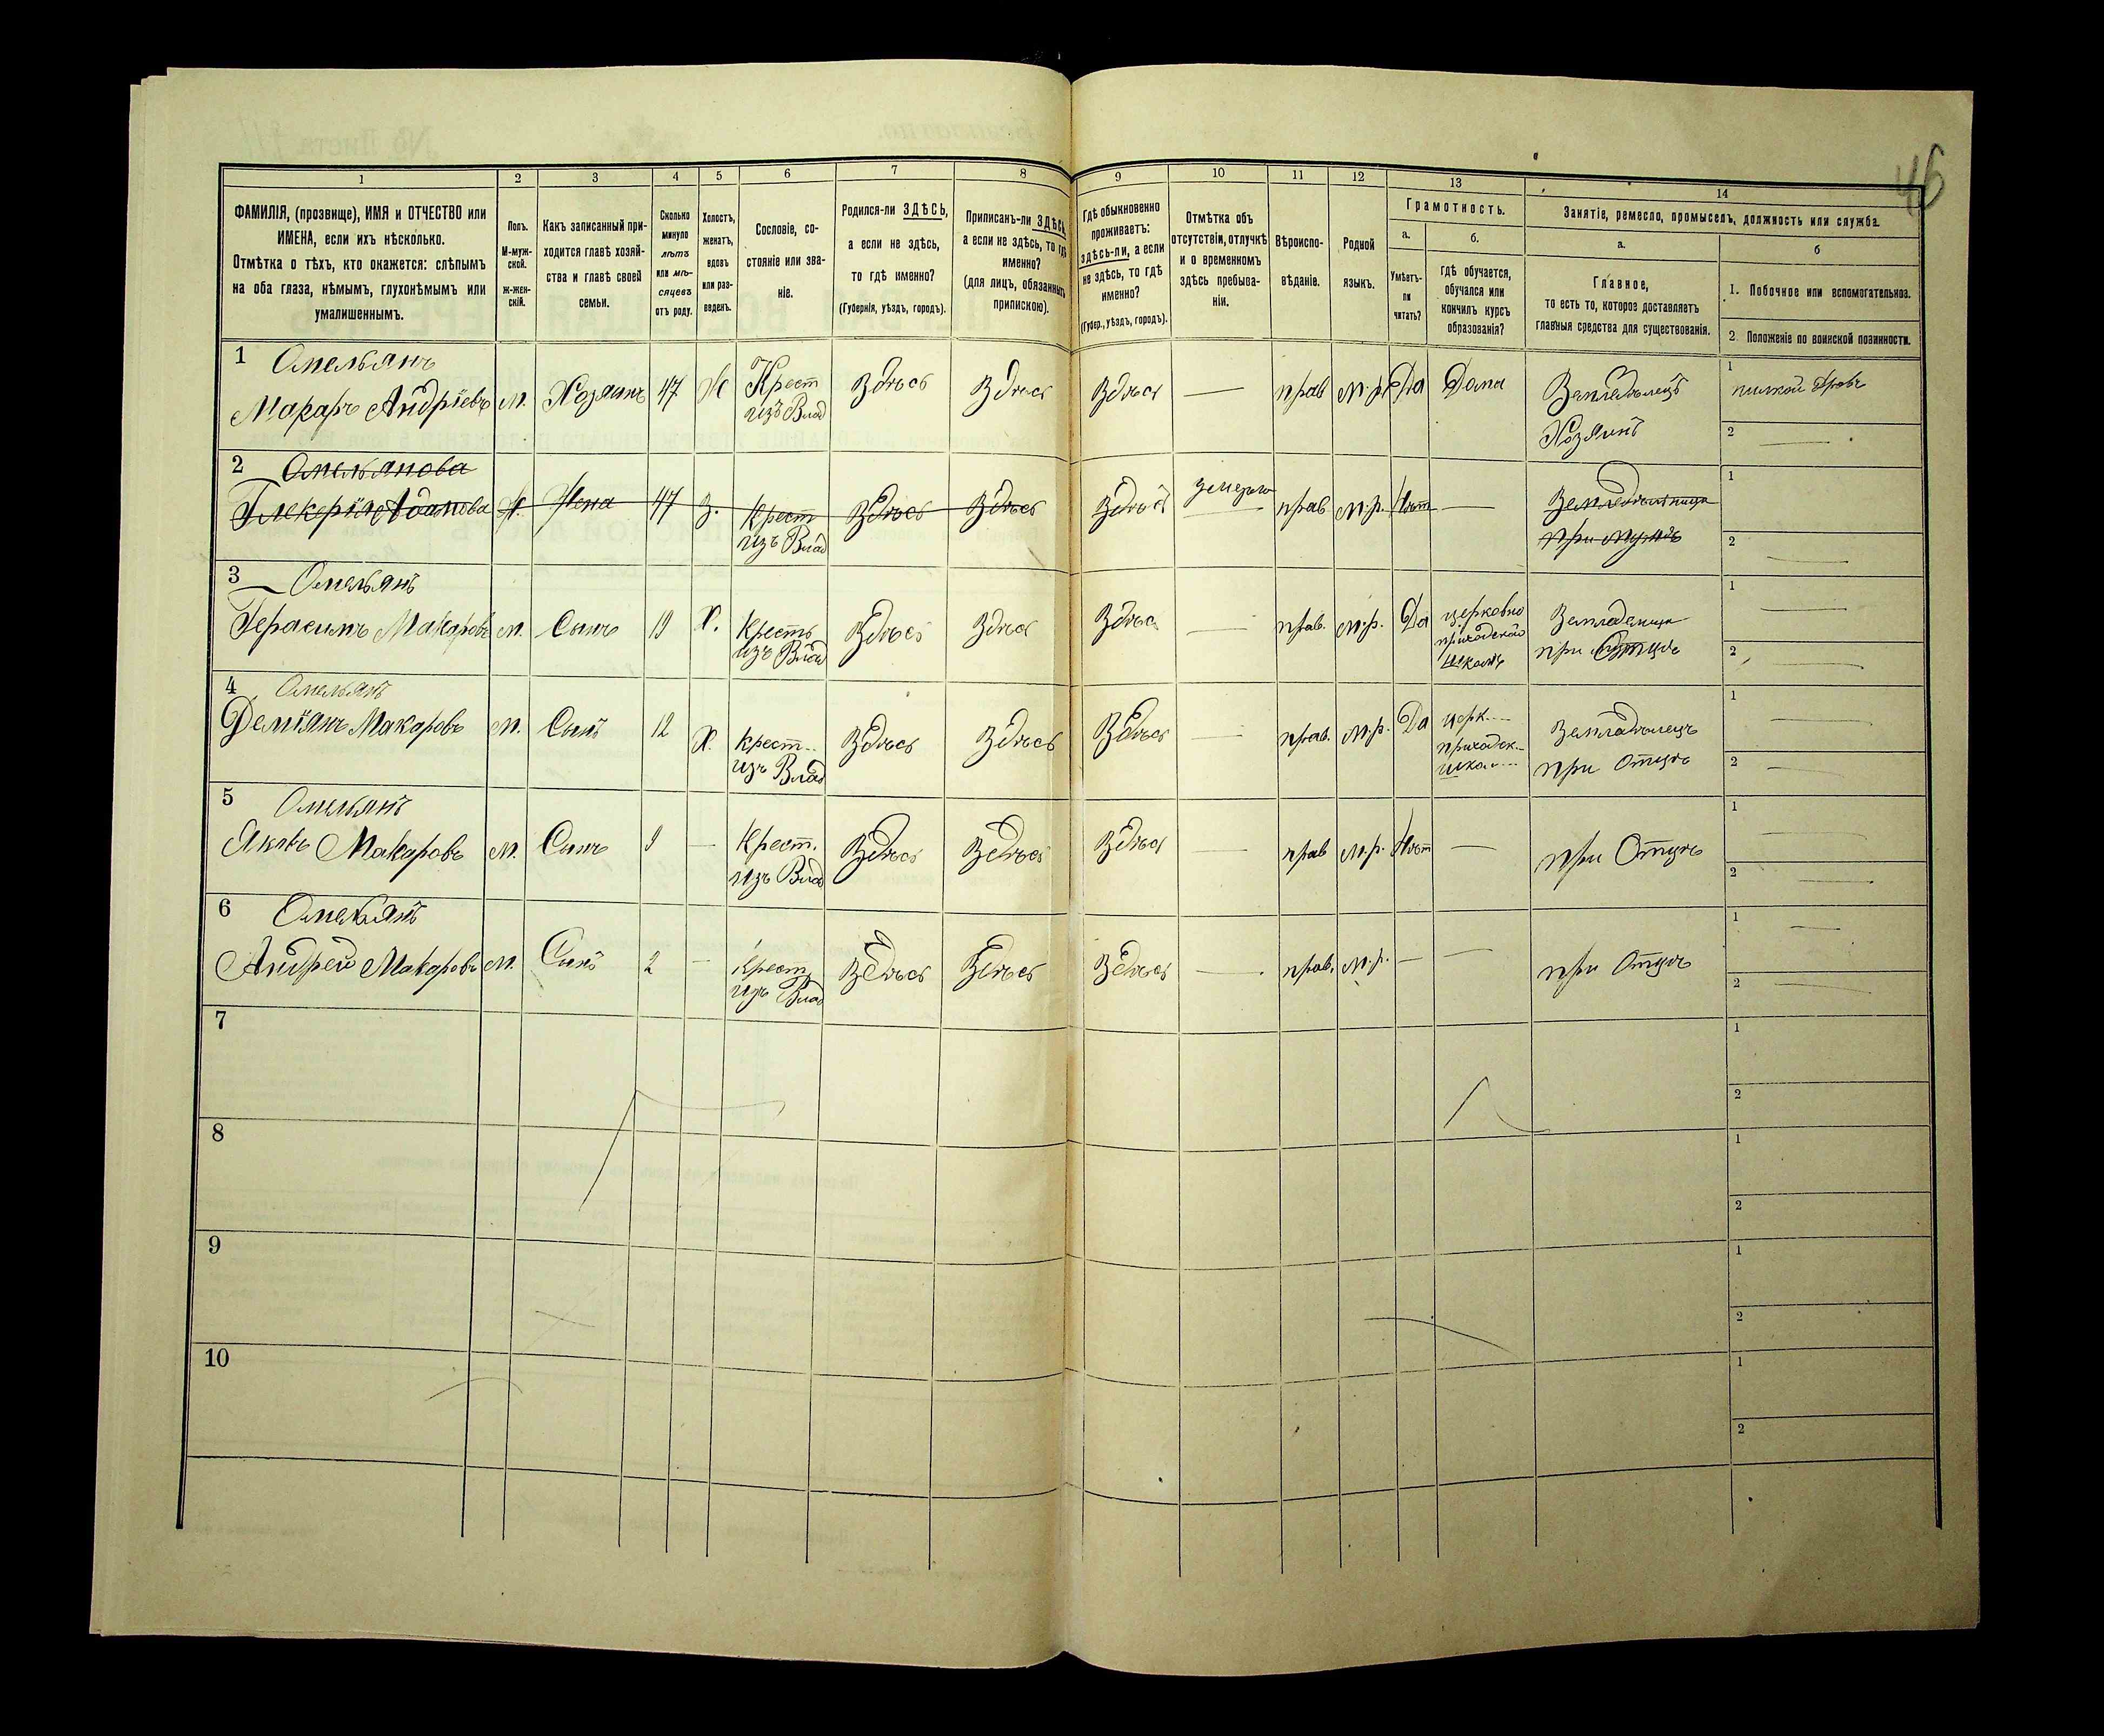 46
1 2 3 4 5 6 7 8 9 10 11 12 13 14
ФАМИЛІЯ, (прозвище), ИМЯ и ОТЧЕСТВО или
ИМЕНА, если ихъ нѣсколько.
Отмѣтка о тѣхъ, кто окажется: слѣпымъ
на оба глаза, нѣмымъ, глухонѣмымъ или
умалишеннымъ.
Полъ.
М-муж-
ской.
Ж-жен-
скій.
Какъ записанный при-
ходится главѣ хозяй-
ства и главѣ своей
семьи.
Сколько
минуло
лѣтъ
или мѣ-
сяцевъ
отъ роду.
Холостъ,
женатъ,
вдовъ
или раз-
веденъ.
Сословіе, со-
стояніе или зва-
ніе.
Родился-ли ЗДѢСЬ,
а если не здѣсь,
то гдѣ именно?
(Губернія, уѣздъ, городъ).
Приписанъ-ли ЗДѢСЬ,
а если не здѣсь, то гдѣ
именно?
(для лицъ, обязанныхъ
припискою).
Гдѣ обыкновенно
проживаетъ:
здѣсь-ли, а если
не здѣсь, то гдѣ
именно?
(Губер., уѣздъ, городъ).
Отмѣтка объ
отсутствіи, отлучкѣ
и о временномъ
здѣсь пребыва-
ніи.
Вѣроиспо-
вѣданіе.
Родной
языкъ.
Грамотность.
а.
Умѣетъ-
ли
читать?
б.
гдѣ обучается,
обучался или
кончилъ курсъ
образованія?
Занятіе, ремесло, промыселъ, должность или служба.
а.
Главное,
то есть то, которое доставляетъ
главныя средства для существованія.
б
1. Побочное или вспомогательное.
2. Положеніе по воинской повинности.
1 Омельянъ
Макаръ Андріевъ М. Хозяинъ 47 Ж Крест Здѣсь Здѣсь Здѣсь — прав М.р. Да Дома Земледѣлецъ 1
изъ Влад Хозяинъ 2 —
2 Омельянова
Глекерія Адамова Ж. Жена 47 З. Крест Здѣсь Здѣсь Здѣсь умерла прав М.р. Нѣт — Земледѣлница 1
изъ Влад при мужѣ 2 —
3 Омельянъ
Герасимъ Макаровъ М. Сынъ 19 Х. Кресть Здѣсь Здѣсь Здѣсь — прав. М.р. Да церковно 1 —
изъ Влад приходской при Отцѣ 2 —
школѣ
4 Омельянъ
Деміянъ Макаровъ М. Сынъ 12 Х. Крест.. Здѣсь Здѣсь Здѣсь — прав. М.р. Да церк... Земладѣлецъ 1 —
изъ Влад приходск... при Отцѣ 2 —
шкал...
5 Омельянъ
Яковъ Макаровъ М. Сынъ 9 — Крест. Здѣсь Здѣсь Здѣсь — прав М.р. Нѣт — при Отцѣ 1 —
изъ Влад 2 —
6 Омельянъ
Андрей Макаровъ М. Сынъ 2 — Крест Здѣсь Здѣсь Здѣсь — прав. М.р. — — при Отцѣ 1 —
изъ Влад 2 —
7 1
2
8 1
2
9 1
2
10 1
2